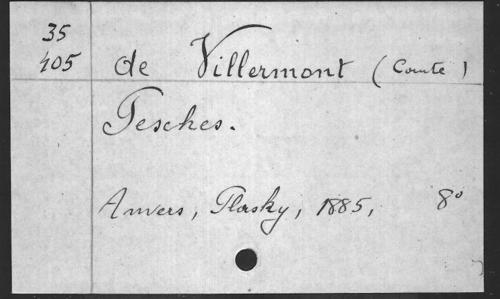 35
405
de Villermont (Comte)
Pesches.
Anvers, Plasky, 1885, 8º